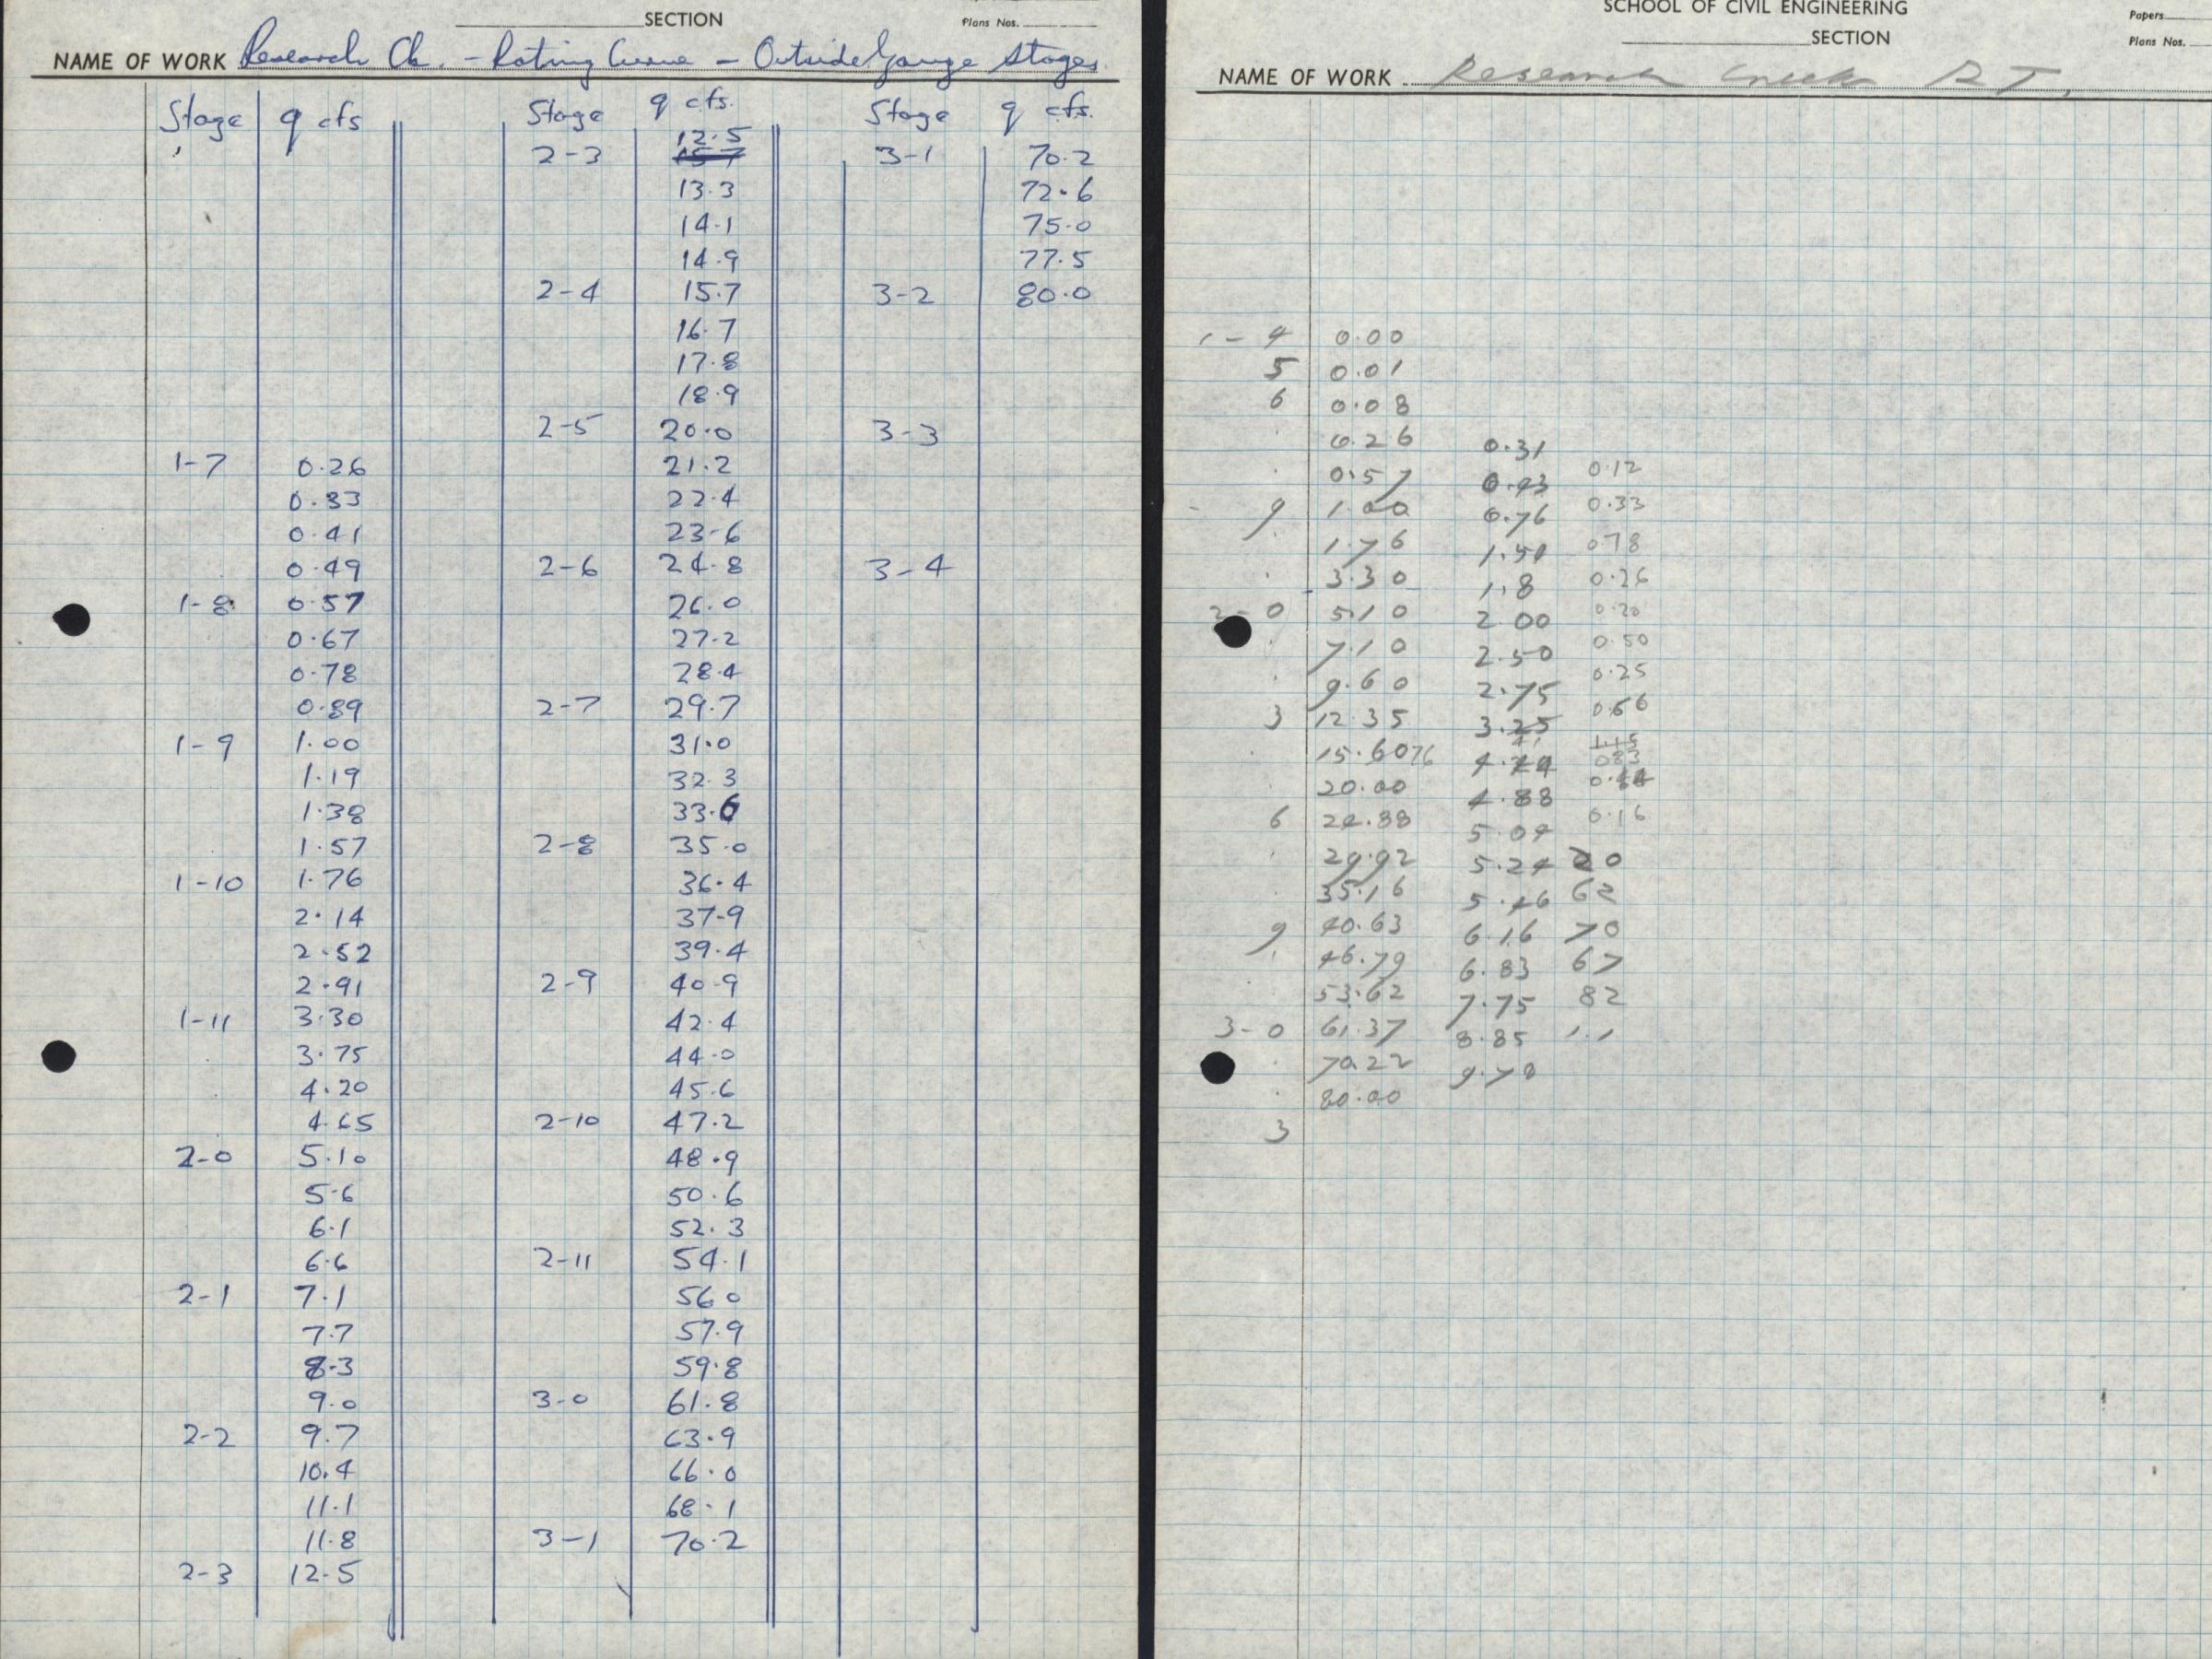 SECTION
Plans Nos.
NAME OF WORK Research Ck. - Rating Curve - Outside Gauge Stages.
Stage q cfs Stage q cfs. Stage q cfs.
12.5
2-3 15.7 3-1 70.2
13.3 72.6
14.1 75.0
14.9 77.5
2-4 15.7 3-2 80.0
16.7
17.8
18.9
2-5 20.0 3-3
1-7 0.26 21.2
0.33 22.4
0.41 23.6
0.49 2-6 24.8 3-4
1-8 0.57 26.0
0.67 27.2
0.78 28.4
0.89 2-7 29.7
1-9 1.00 31.0
1.19 32.3
1.38 33.6
1.57 2-8 35.0
1-10 1.76 36.4
2.14 37.9
2.52 39.4
2.91 2-9 40.9
1-11 3.30 42.4
3.75 44.0
4.20 45.6
4.65 2-10 47.2
2-0 5.10 48.9
5.6 50.6
6.1 52.3
6.6 2-11 54.1
2-1 7.1 56.0
7.7 57.9
8.3 59.8
9.0 3-0 61.8
2-2 9.7 63.9
10.4 66.0
11.1 68.1
11.8 3-1 70.2
2-3 12.5
SCHOOL OF CIVIL ENGINEERING
Papers
SECTION
Plans Nos.
NAME OF WORK Research Creek R T.
1-4 0.00
5 0.01
6 0.08
0.26 0.31
0.57 0.43 0.12
9 1.00 0.76 0.33
1.76 1.54 0.78
3.30 1.8 0.26
2-0 5.10 2.00 0.20
7.10 2.50 0.50
9.60 2.75 0.25
3 12.35 3.25 0.66
15.6076 1.15
4.24 0.83
20.00 4.88 0.44
6 24.88 5.04 0.16
29.92 5.24 20
35.16 5.46 62
9 40.63 6.16 70
46.79 6.83 67
53.62 7.75 82
3-0 61.37 8.85 1.1
70.22 9.78
80.00
3